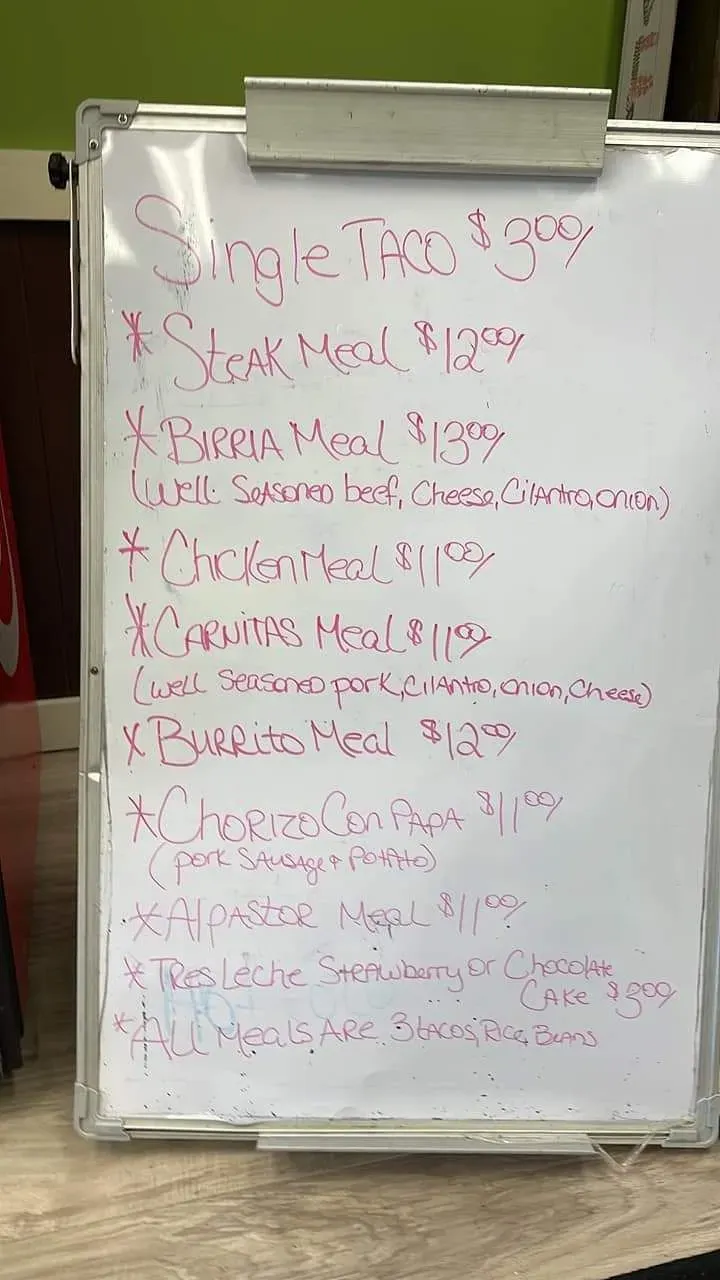 Single TACO $3.00/
* SteAK Meal $12.00/
* BIRRIA Meal $13.00/
(Well. SeAsoneD beef, Cheese, CilAntro, onion)
* Chicken Meal $11.00/
* CARNiTAS Meal $11.00
(well SeasoneD pork, CilAntro, onion, Cheese)
* BuRRito Meal $12.00/
* CHORIZO Con PAPA $11.00/
(pork SAusAge & PotAto)
* AlpAStoR Meal $11.00/
* TRes Leche StRAwberry or ChocolAte
CAKe $3.00/
* ALL Meals ARe 3 tAcos, Rice, BeAns